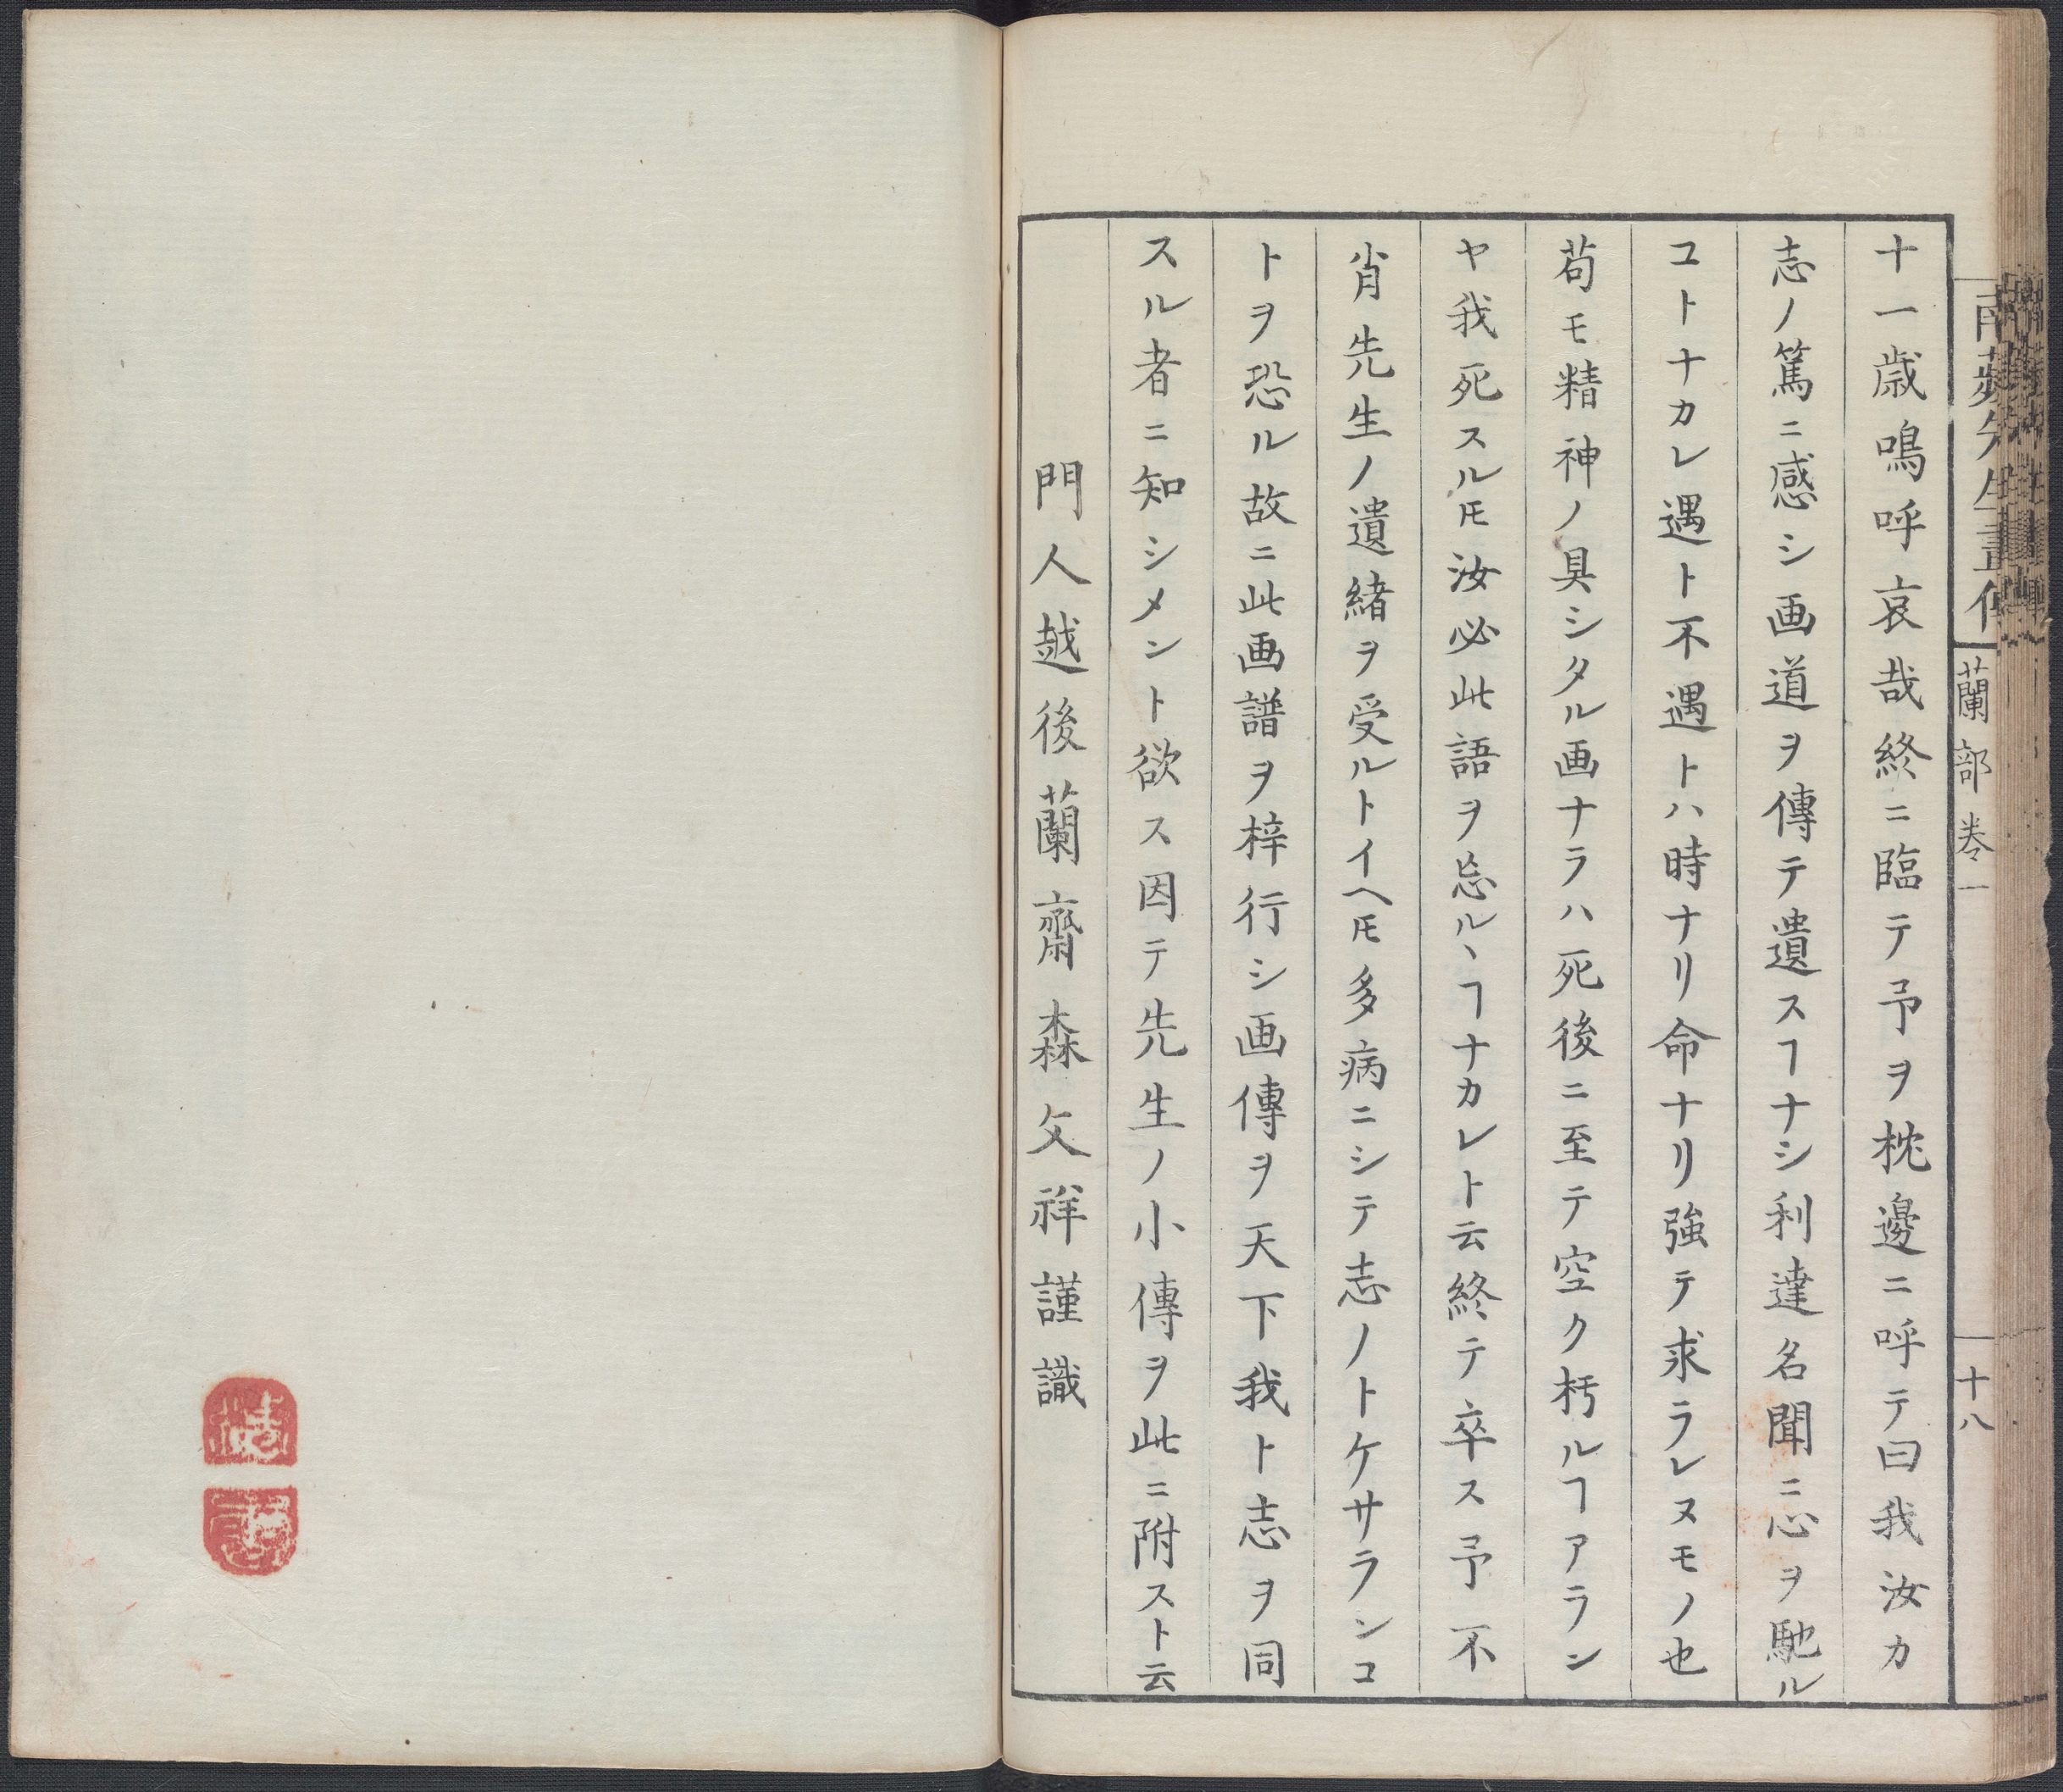 十一歳嗚呼哀哉終ニ臨テ予ヲ枕邊ニ呼テ曰我汝カ
志ノ篤ニ感シ画道ヲ傳テ遺スヿナシ利達名聞ニ志ヲ馳ル
コトナカレ遇ト不遇トハ時ナリ命ナリ強テ求ラレヌモノ也
苟モ精神ノ具シタル画ナラハ死後ニ至テ空ク朽ルヿアラン
ヤ我死スルモ汝必此語ヲ忘ルヽヿナカレト云終テ卒ス予不
肖先生ノ遺緒ヲ受ルトイヘ𪜈多病ニシテ志ノトケサランコ
トヲ恐ル故ニ此画譜ヲ梓行シ画傳ヲ天下我ト志ヲ同
スル者ニ知シメント欲ス因テ先生ノ小傳ヲ此ニ附スト云
門人越後蘭齋森文祥謹識
蘭部卷一
十八